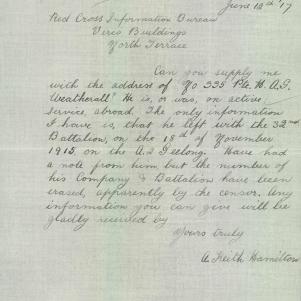 June 12th '17
Red Cross Information Bureau
Verco Buildings
North Terrace
Can you supply me
with the address of "No 335 Pte. W. A. G.
Weatherall" He is, or was, on active
service, abroad. The only information
I have is, that he left with the 32nd
Battalion, on the 18th of November
1915, on the A.2 Geelong. Have had
a note from him but the number of
his Company & Battalion have been
erased, apparently by the censor. Any
information you can give will be
gladly received by
Yours truly
A. Keith Hamilton